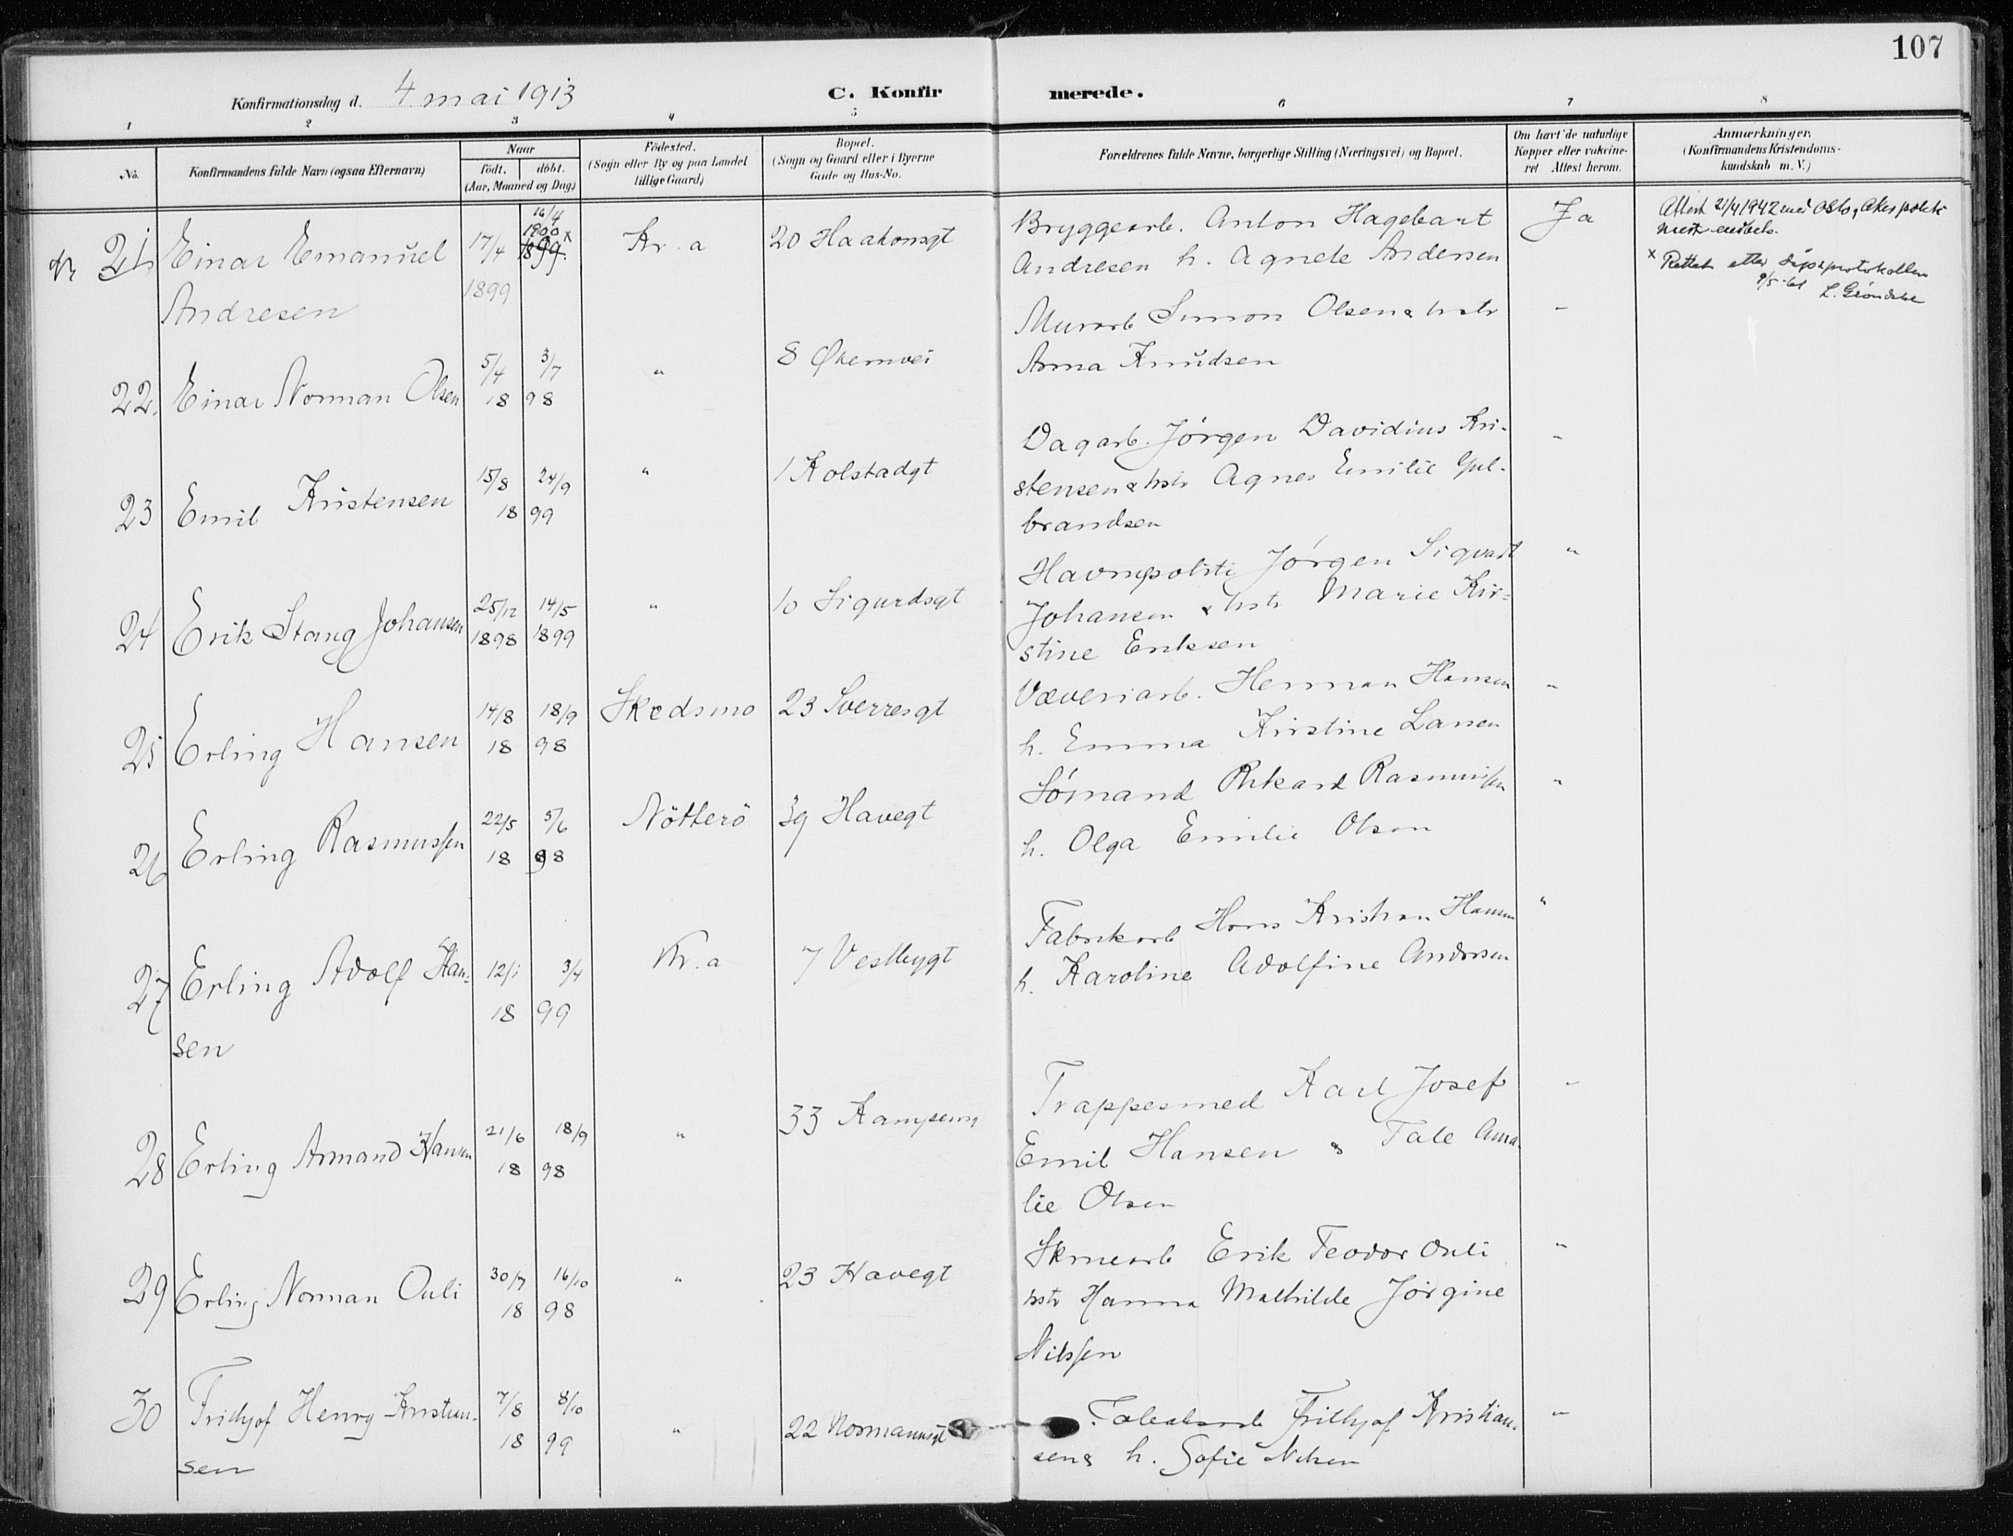 107
Konfirmationsdag d. 4 mai 1913 C. Konfirmerede.
1 2 3 4 5 6 7 8
No. Konfirmandens fulde Navn (ogsaa Efternavn) Naar født. døbt. (Aar, Maaned og Dag) Fødested. (Sogn eller By og paa Landet tillige Gaard) Bopæl. (Sogn og Gaard eller i Byerne Gade og Hus-No. Forældrenes fulde Navne, borgerlige Stilling (Næringsvei) og Bopæl. Om havt de naturlige Kopper eller vakcineret Attest herom. Anmærkninger. (Konfirmandens Kristendomskundskab m. V.)
21 Einar Emanuel 17/4 16/4 1900 x 1899. Kr.a 20 Haakonsgt Bryggearb. Anton Hagebart Ja Attest 21/4 1942
Andresen 1899 Andresen h. Agnete Andersen x Rettet etter dåpsprotokollen
9/5-61 L. Grøndahl
22. Einar Norman Olsen 5/4 3/7 1898 " 8 Økernvei Murarb Simon Olsen & hstr "
Anna Knudsen
23 Emil Kristensen 15/8 24/9 1899 " 1 Kolstadgt Dagarb. Jörgen Davidius Kri- "
stensen & hstr Agnes Emilie Gul-
brandsen
24 Erik Stang Johansen 25/12 1898 14/5 1899 " 10 Sigurdsgt Havnepoliti Jörgen Sigvart "
Johansen & hstr Marie Kri-
stine Eriksen
25 Erling Hansen 14/8 18/9 1898 Skedsmo 23 Sverresgt Væveriarb. Herman Hansen "
h. Emma Kristine Larsen
26 Erling Rasmussen 22/5 5/6 1898 Nötterö 39 Havegt Sømand Rikard Rasmussen "
h. Olga Emilie Olsen
27 Erling Adolf Han- 12/1 3/4 1899 Kr.a 7 Vestbygt Fabrikarb Hans Kristian Hansen "
sen h. Karoline Adolfine Andersen
28 Erling Armand Hansen 21/6 18/9 1898 " 33 Kampens Trappesmed Karl Josef "
Emil Hansen & Tale Ama-
lie Olsen
29 Erling Norman Ouli 30/7 16/10 1898 " 23 Havegt Erik Teodor Ouli "
hstr Hanna Mathilde Jörgine
Nilssen
30 Frithjof Henry Kristian- 7/8 8/10 1899 " 22 Normannsgt Frithjof Kristian- "
sen sen & h. Sofie Nilsen